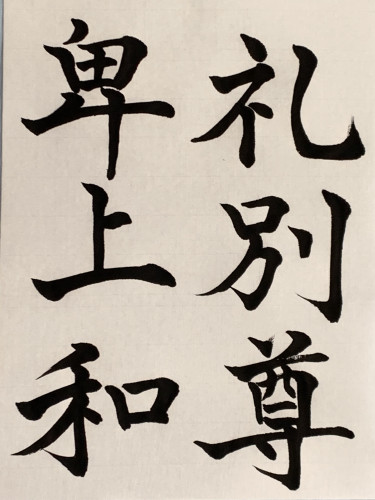 礼別尊
卑上和